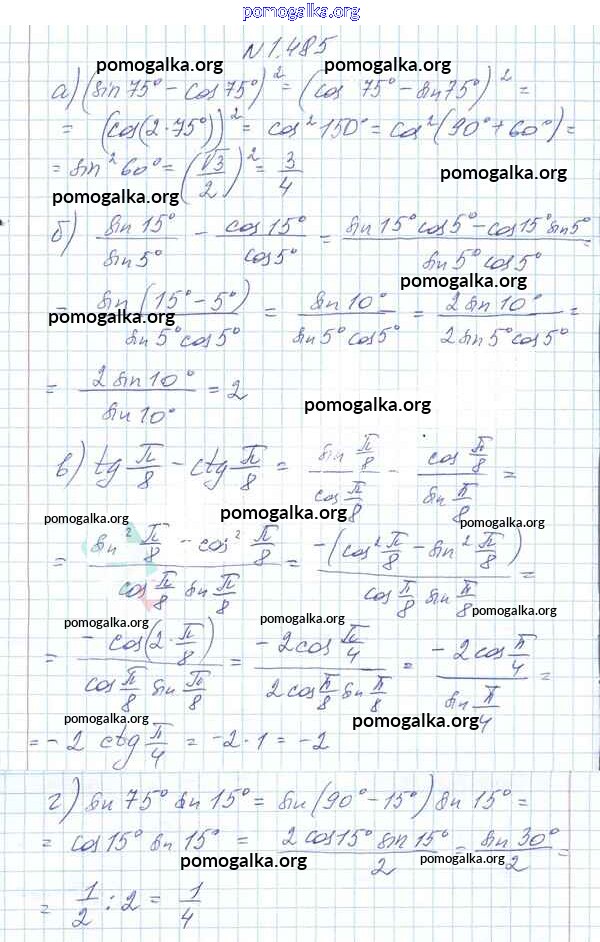 pomogalka.org
N 1.485
pomogalka.org pomogalka.org
а) (sin 75° - cos 75°)² = (cos 75° - sin 75°)² =
= (cos(2·75°))² = cos² 150° = cos²(90° + 60°) =
= sin² 60° = (√3/2)² = 3/4
pomogalka.org
pomogalka.org
б) sin 15°/sin 5° - cos 15°/cos 5° = (sin 15° cos 5° - cos 15° sin 5°)/(sin 5° cos 5°)
pomogalka.org
= sin(15° - 5°)/(sin 5° cos 5°) = sin 10°/(sin 5° cos 5°) = 2 sin 10°/(2 sin 5° cos 5°) =
pomogalka.org
= 2 sin 10°/sin 10° = 2
pomogalka.org
в) tg π/8 - ctg π/8 = (sin π/8)/(cos π/8) - (cos π/8)/(sin π/8) =
pomogalka.org pomogalka.org pomogalka.org
= (sin² π/8 - cos² π/8)/(cos π/8 sin π/8) = -(cos² π/8 - sin² π/8)/(cos π/8 sin π/8) =
pomogalka.org pomogalka.org
= -cos(2·π/8)/(cos π/8 sin π/8) = (-2cos π/4)/(2cos π/8 sin π/8) = (-2cos π/4)/(sin π/4) =
pomogalka.org pomogalka.org
= -2 ctg π/4 = -2·1 = -2
pomogalka.org
г) sin 75° sin 15° = sin(90° - 15°) sin 15° =
= cos 15° sin 15° = (2 cos 15° sin 15°)/2 = sin 30°/2 =
pomogalka.org pomogalka.org
= 1/2 : 2 = 1/4
pomogalka.org